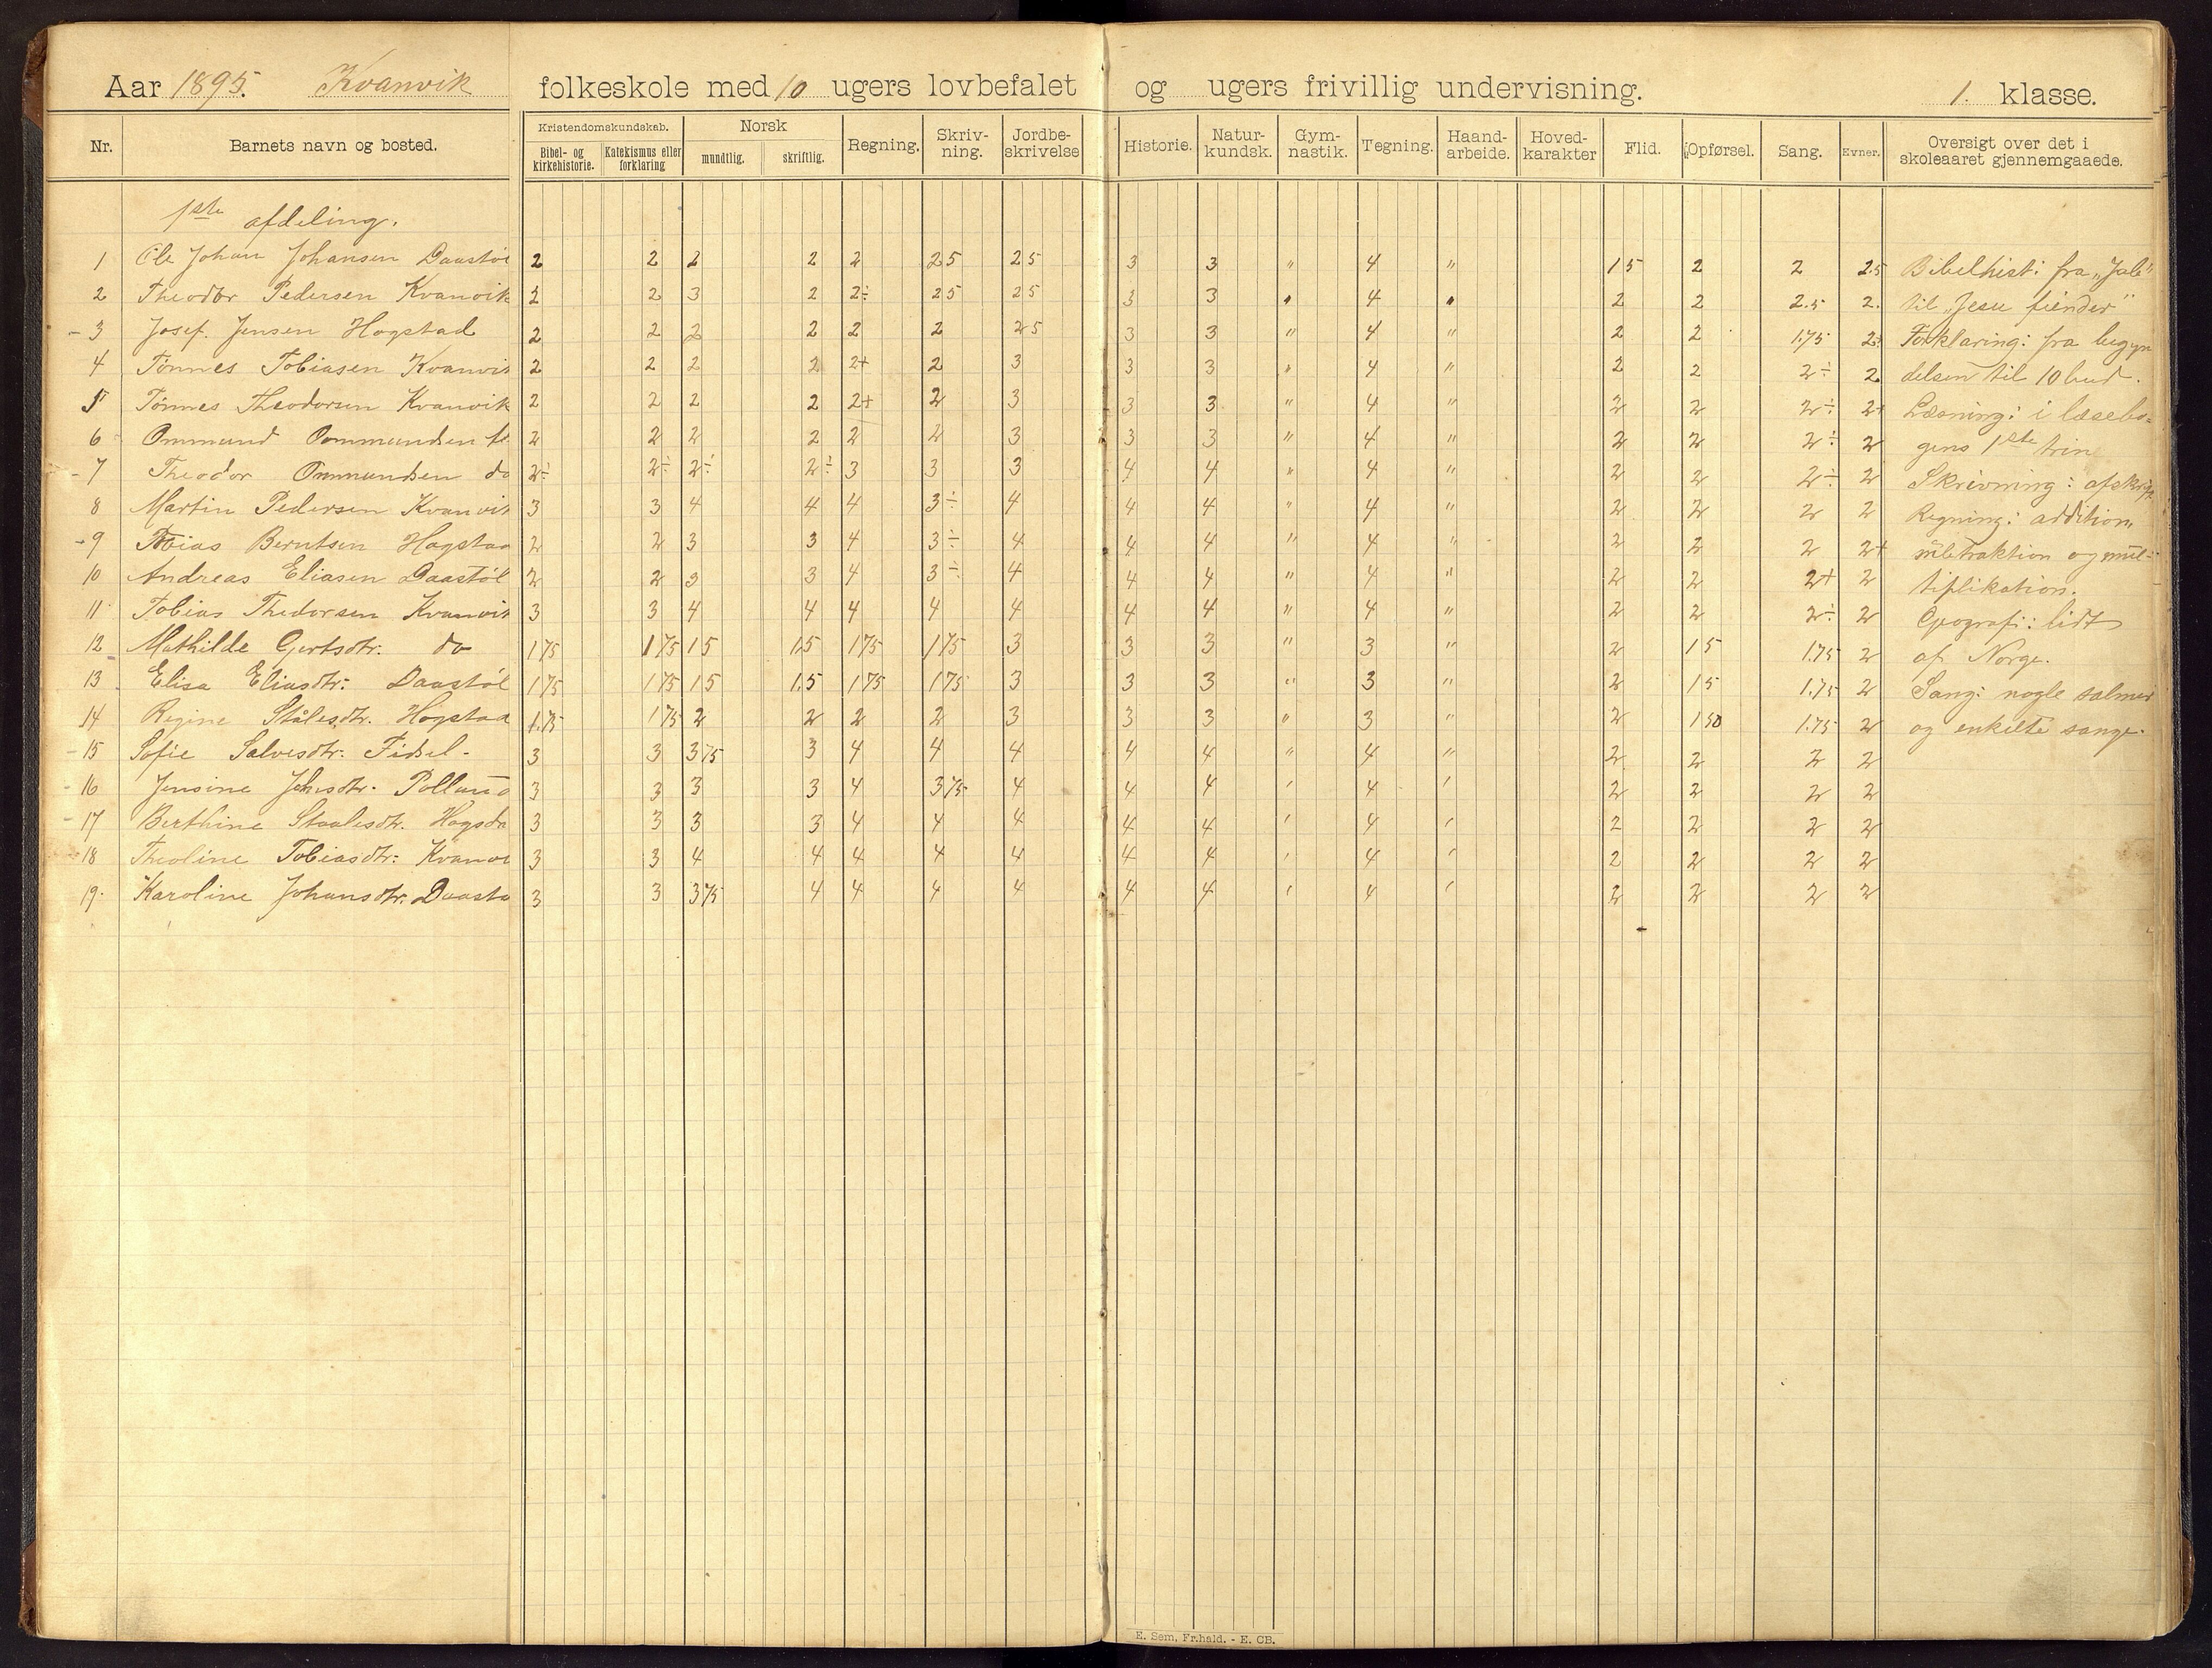 Aar 1895. Kvanvik folkeskole med 10 ugers lovbefalet og ugers frivillig undervisning. 1. klasse.
Nr. Barnets navn og bosted. Kristendomskundskab. Bibel- og kirkehistorie. Katekismus eller forklaring Norsk mundtlig. skriftlig. Regning. Skriv-ning. Jordbe-skrivelse Historie. Natur-kundsk. Gym-nastik. Tegning. Haand-arbeide. Hoved-karakter Flid. Opførsel. Sang. Evner. Oversigt over det i skoleaaret gjennemgaaede.
1ste afdeling.
1 Ole Johan Johansen Daastøl 2 2 2 2 2 25 25 3 3 " 4 " 15 2 2 2.5 Bibelhist: fra
2 Theodor Pedersen Kvanvik 2 2 3 2 2÷ 25 25 3 3 " 4 " 2 2 2.5 2. til „Jesu fiender"
3 Josef Jensen Hogstad 2 2 2 2 2 2 25 3 3 " 4 " 2 2 1.75 2÷ Forklaring: fra begyn
4 Tønnes Tobiasen Kvanvik 2 2 2 2 2+ 2 3 3 3 " 4 " 2 2 2÷ 2 delsen til 10 bud.
5 Tønnes Theodorsen Kvanvik 2 2 2 2 2+ 2 3 3 3 " 4 " 2 2 2÷ 2+ Læsning: i læsebo=
6 Ommund Ommundsen 2 2 2 2 2 2 3 3 3 " 4 " 2 2 2÷ 2 gens 1ste trin
7 Theodor Ommundsen do 2÷ 2÷ 2÷ 2÷ 3 3 3 4 4 " 4 " 2 2 2÷ 2 Skrivning: afskrift
8 Martin Pedersen Kvanvik 3 3 4 4 4 3÷ 4 4 4 " 4 " 2 2 2 2 Regning: addition,
9 Tobias Berntsen Hogstad 2 2 3 3 4 3÷ 4 4 4 " 4 " 2 2 2 2+ subtraktion og mul-
10 Andreas Eliasen Daastøl 2 2 3 3 4 3÷ 4 4 4 " 4 " 2 2 2+ 2 tiplikation.
11 Tobias Thedorsen Kvanvik 3 3 4 4 4 4 4 4 4 " 4 " 2 2 2÷ 2 Geografi: lidt
12 Mathilde Gertsdtr. do 175 175 15 1.5 175 175 3 3 3 " 3 " 2 15 1.75 2 af Norge.
13 Elisa Eliasdtr: Daastøl 175 175 15 1.5 175 175 3 3 3 " 3 " 2 15 1.75 2 Sang: nogle salmer
14 Regine Stålesdtr. Hogstad 1.75 175 2 2 2 2 3 3 3 " 3 " 2 150 1.75 2 og enkelte sange.
15 Sofie Salvesdtr: Fidsel. 3 3 375 3 4 4 4 4 4 " 4 " 2 2 2 2
16 Jensine 3 3 3 3 4 375 4 4 4 ' 4 ' 2 2 2 2
17 Berthine Staalesdtr. 3 3 3 3 4 4 4 4 4 ' 4 ' 2 2 2 2
18 Theoline Tobiasdtr: Kvanvi 3 3 4 4 4 4 4 4 4 ' 4 ' 2 2 2 2
19. Karoline Johansdtr. Daastø 3 3 375 4 4 4 4 4 4 ' 4 ' 2 2 2 2
E. Sem, Fr.hald. - E. CB.